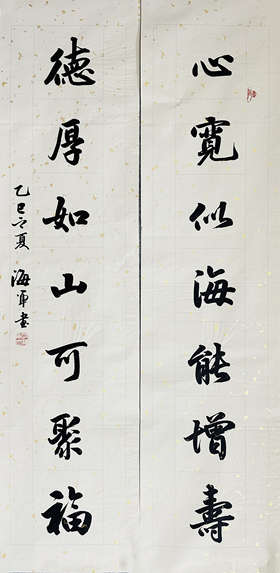 心寬似海能增壽
德厚如山可聚福
乙巳之夏 海军书